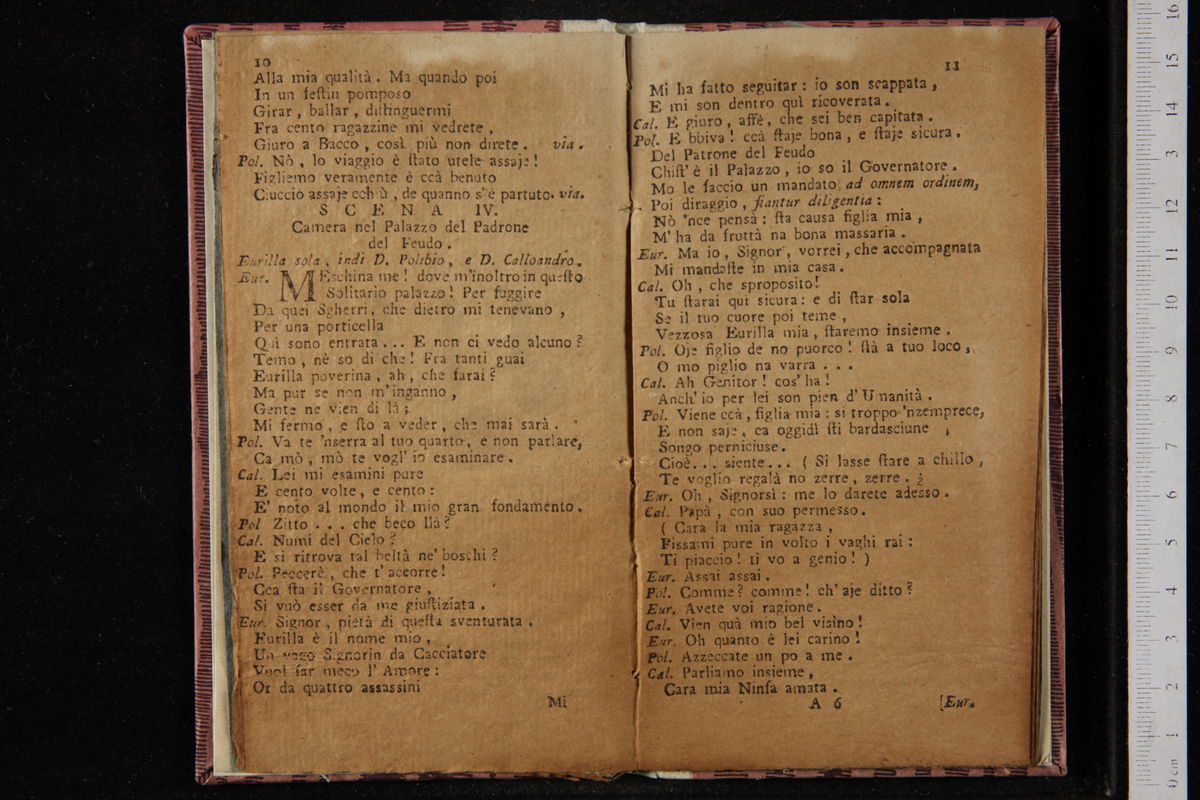 10
Alla mia qualità. Ma quando poi
In un feſtin pompoſo
Girar, ballar, diſtinguermi
Fra cento ragazzine mi vedrete,
Giuro a Bacco, così più non direte. via.
Pol. Nò, lo viaggio è ſtato utele aſſaje!
Figliemo veramente è ccà benuto
Ciuccio aſſaje cchiù, de quanno s'è partuto. via.
SCENA IV.
Camera nel Palazzo del Padrone
del Feudo.
Eurilla ſola, indi D. Polibio, e D. Calloandro.
Eur. MEſchina me! dove m'inoltro in queſto
Solitario palazzo! Per fuggire
Da quei Sgherri, che dietro mi tenevano,
Per una porticella
Quì sono entrata... E non ci vedo alcuno?
Temo, nè so di che! Fra tanti guai
Eurilla poverina, ah, che farai?
Ma pur se non m'inganno,
Gente ne vien di là;
Mi fermo, e ſto a veder, che mai sarà.
Pol. Va te 'nserra al tuo quarto, e non parlare,
Ca mò, mò te vogl' io esaminare.
Cal. Lei mi esamini pure
E cento volte, e cento:
E' noto al mondo il mio gran fondamento.
Pol Zitto... che beco llà?
Cal. Numi del Cielo?
E si ritrova tal beltà ne' boschi?
Pol. Peccerè, che t' accorre!
Cca ſta il Governatore,
Si vuò esser da me giuſtiziata.
Eur. Signor, pietà di queſta sventurata.
Eurilla è il nome mio,
Un vago Signorin da Cacciatore
Vuol far meco l' Amore:
Or da quattro assassini
Mi
11
Mi ha fatto seguitar: io son scappata,
E mi son dentro quì ricoverata.
Cal. E giuro, affè, che sei ben capitata.
Pol. E bbiva! ccà ſtaje bona, e ſtaje sicura.
Del Patrone del Feudo
Chiſt' è il Palazzo, io so il Governatore.
Mo le faccio un mandato ad omnem ordinem,
Poi diraggio, fiantur diligentia:
Nò 'nce pensà: ſta causa figlia mia,
M' ha da fruttà na bona massaria.
Eur. Ma io, Signor, vorrei, che accompagnata
Mi mandaſte in mia casa.
Cal. Oh, che sproposito!
Tu ſtarai quì sicura: e di ſtar sola
Se il tuo cuore poi teme,
Vezzosa Eurilla mia, ſtaremo insieme.
Pol. Oje figlio de no puorco! ſtà a tuo loco,
O mo piglio na varra...
Cal. Ah Genitor! cos' ha!
Anch' io per lei son pien d' Umanità.
Pol. Viene ccà, figlia mia: si troppo 'nzemprece,
E non saje, ca oggidì ſti bardasciune
Songo perniciuse.
Cioè... siente... (Si lasse ſtare a chillo,
Te voglio regalà no zerre, zerre.
Eur. Oh, Signorsì: me lo darete adesso.
Cal. Papà, con suo permesso.
(Cara la mia ragazza,
Fissami pure in volto i vaghi rai:
Ti piaccio! ti vo a genio!)
Eur. Assai assai.
Pol. Comme? comme! ch' aje ditto?
Eur. Avete voi ragione.
Cal. Vien quà mio bel visino!
Eur. Oh quanto è lei carino!
Pol. Azzeccate un po a me.
Cal. Parliamo insieme,
Cara mia Ninfa amata.
A 6 [Eur.